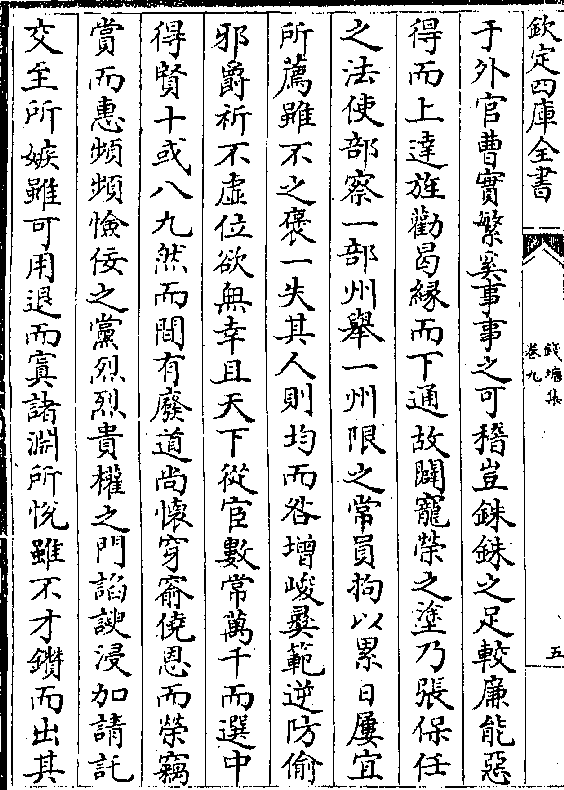 欽定四庫全書
錢塘集
卷九
五
于外官曹實繁奚事事之可稽豈銖銖之足較廉能惡
得而上達旌勸曷緣而下通故闢寵榮之塗乃張保任
之法使部察一部州舉一州限之常員拘以累日屢宜
所薦雖不之褒一失其人則均而咎增峻彞範逆防偷
邪爵祈不虛位欲無幸且天下從宦數常萬千而選中
得賢十或八九然而間有廢道尚懷穿窬僥恩而榮竊
賞而惠頻頻憸佞之黨烈烈貴權之門諂諛浸加請託
交至所嫉雖可用退而寘諸淵所悅雖不才鑽而出其